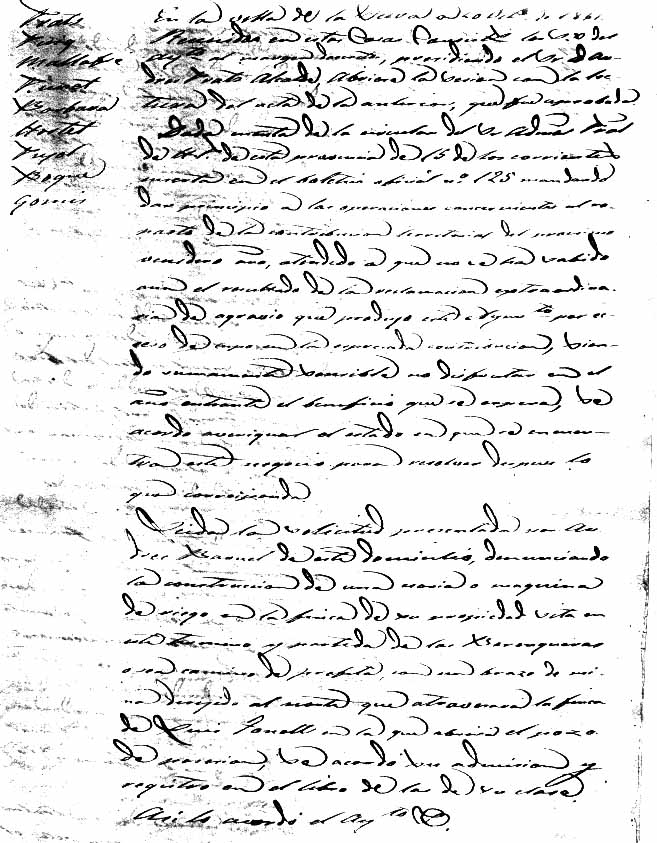 Prats
Puig
Mallobre
Pinart
Hostet
Pujol
Roque
Gomis
En la villa de la
Reunidos en estas Casas la S.
Ayto al margen presidiendo el Sr.
Prats Alcalde, abriose la sesion con la lec-
tura del acta de la anterior, que fue aprobada.
Dada cuenta de la circular del Sr. Admor Pral
de de esta provincia de 15 de los corrientes
inserta en el boletin oficial nº 125 mandando
dar principio a las operaciones concernientes al re-
parto de la contribucion territorial del proximo
venidero año, atendido a que no se ha sabido
aun el resultado de la reclamacion extraordina-
ria de agravio que produjo este Ayunto por ec-
ceso de cupo en la espresada contribucion, sien-
do sumamente sensible no disfrutar en el
año entrante el beneficio que se espera, se
acordo averiguar el estado en que se encuen-
tra este negocio para resolver despues lo
que corresponda
Leida la solicitud presentada por An
dres de este domicilio, denunciando
la construccion de una noria o maquina
de riego en la finca de su propiedad sita en
este termino y partida de las
o sea camino de con un brazo de mi-
na dirigido al norte que atravesara la finca
de Luis Fonoll en la que abrira el pozo
de se acordo su admision y
registro en el libro de las de su clase.
Asi lo acordó el Ayto